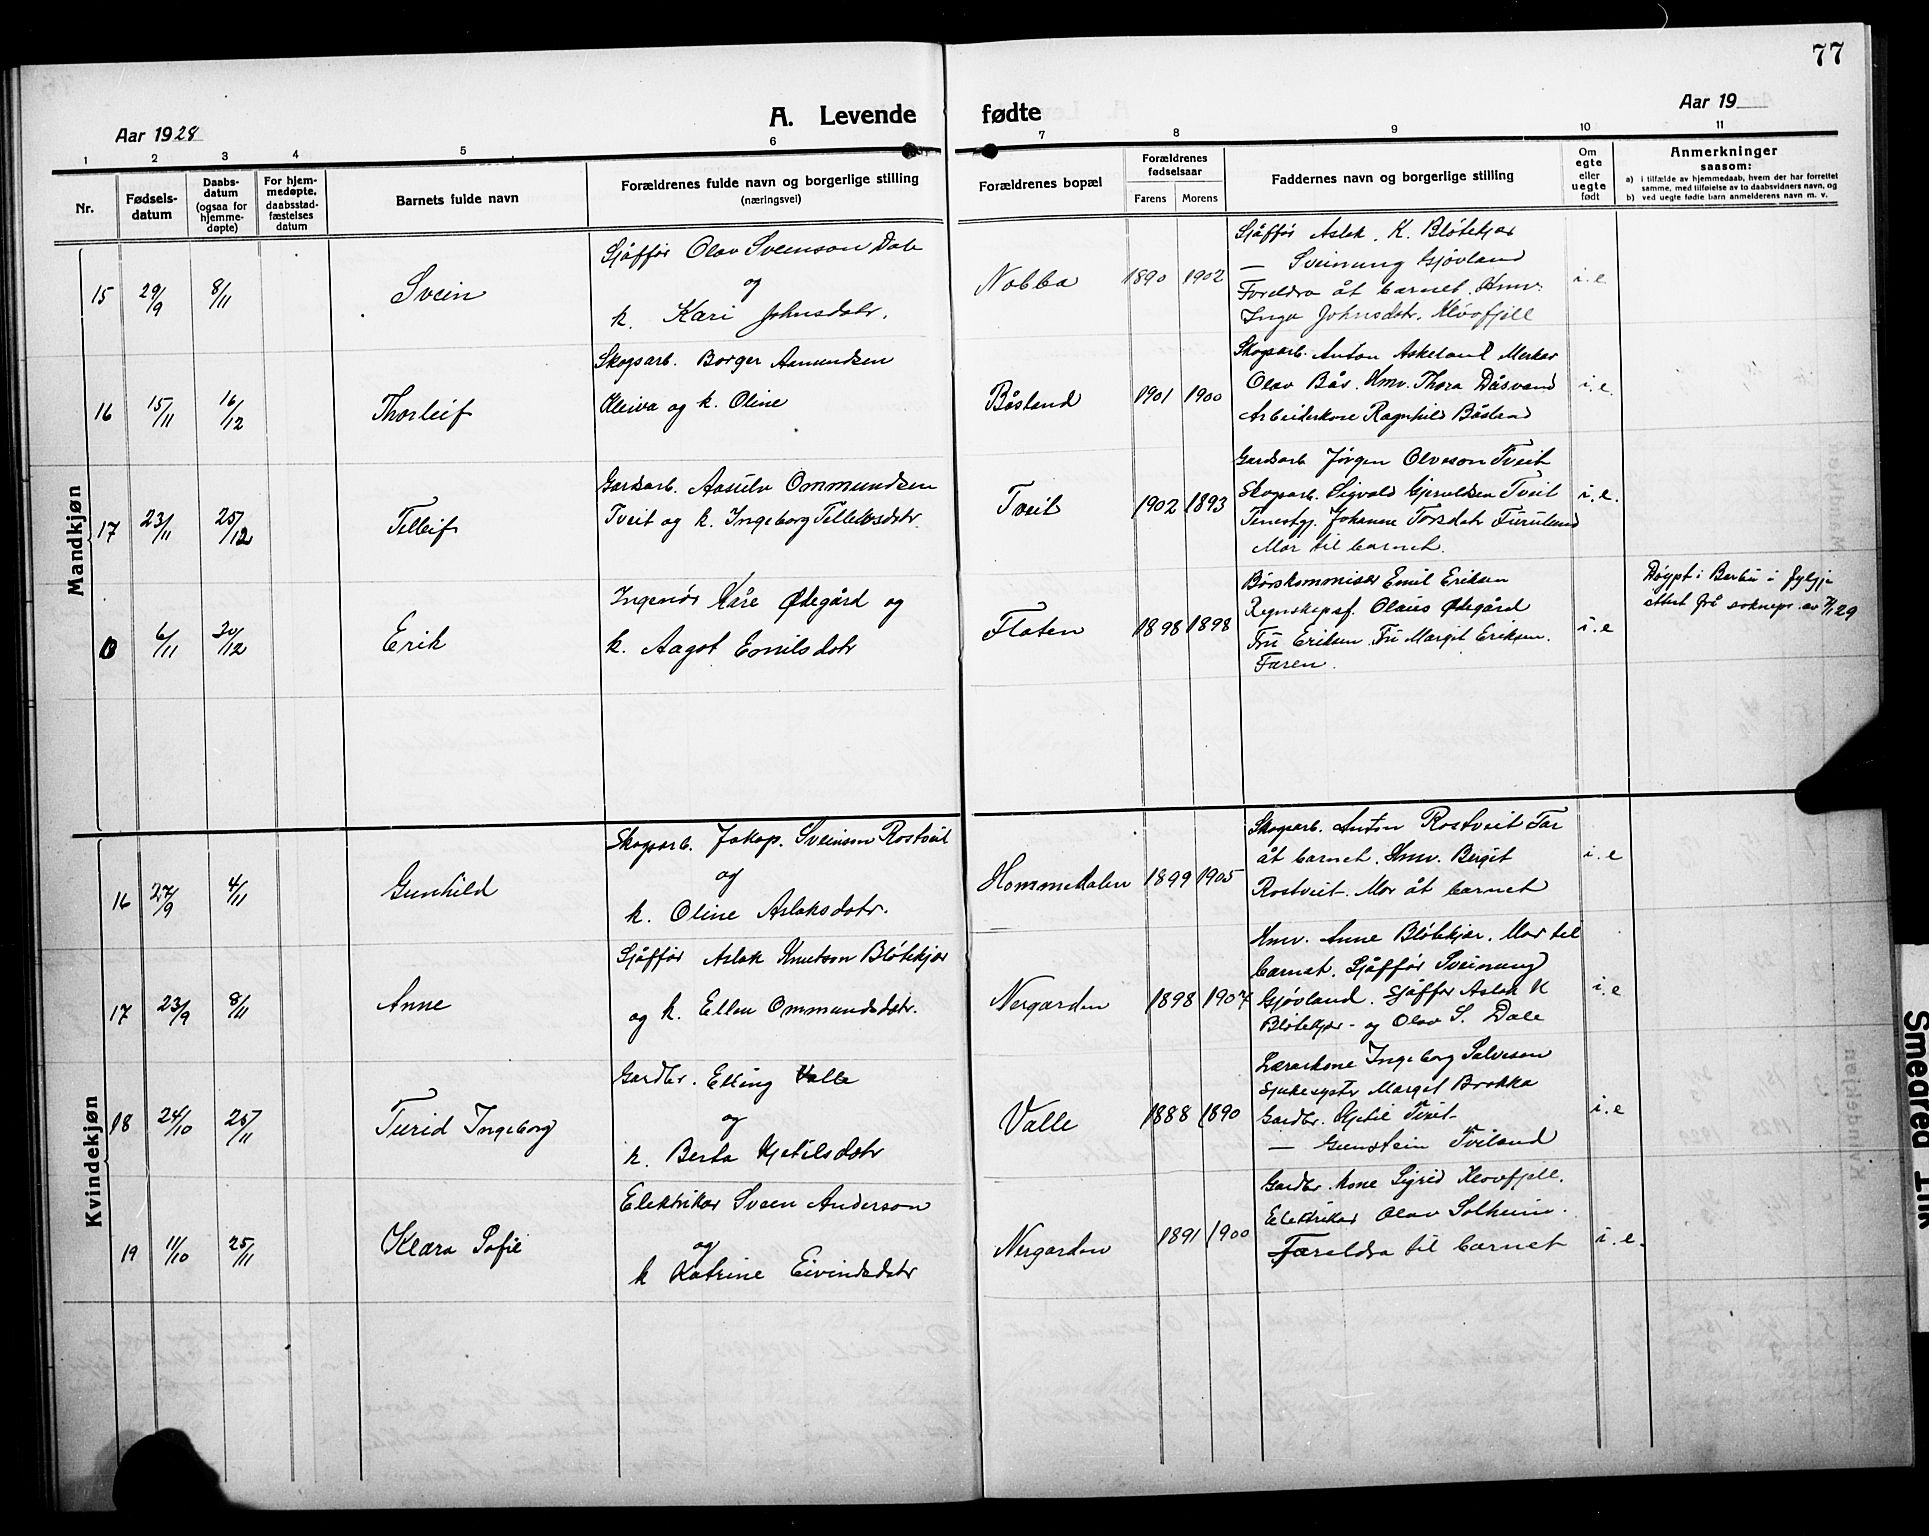 77
Aar 1928
A. Levende fødte
Aar 19
1 2 3 4 5 6 7 8 9 10 11
Nr.
Fødsels-
datum
Daabs-
datum
(ogsaa for
hjemme-
døpte)
For hjem-
medøpte,
daabsstad-
fæstelses
datum
Barnets fulde navn
Forældrenes fulde navn og borgerlige stilling
(næringsvei)
Forældrenes bopæl
Forældrenes
fødselsaar
Farens Morens
Faddernes navn og borgerlige stilling
Om
egte
eller
uegte
født
Anmerkninger
saasom:
a) i tilfælde av hjemmedaab, hvem der har forrettet
samme, med tilføielse av to daabsvidners navn, og
b) ved uegte fødte barn anmelderens navn m. v.
Mandkjøn
15 29/9 8/11 Svein
Sjåffør Olav Sveinson Dale
og
k. Kari Johnsdotr.
Nobba 1890 1902
Sjåffør Aslak K. Bløtekjær
— Sveinung Gjøvland
Foreldra åt barnet. Hmv.
Inga Johnsdotr. Kløvfjell
i.e
16 15/11 16/12 Thorleif
Skogsarb. Borger Asmundsen
Kleiva og k. Oline
Båsland 1901 1900
Skogsarb. Anton Askeland Merkar
Olav Bås. Hmv. Thora Dåsvand
Arbeiderkone Ragnhild Båsland
i.e.
17 23/11 25/12 Telleif
Gardsarb. Aasulv Ommundsen
Tveit og k. Ingeborg Tellefsdotr.
Tveit 1902 1893
Gardsarb Jørgen Olveson Tveit
Skogsarb. Sigvald Gjeruldsen Tveit
Tenestgj. Johanne Torsdotr Furulund
Mor til barnet.
i.e.
6/11 30/12 Erik
Ingeniør Kåre Ødegård og
k. Aagot Emilsdotr
Flaten 1898 1898
Børskommisær Emil Eriksen
Regnskapsf. Olaus Ødegård
Fru Eriksen. Fru Margit Eriksen.
Faren.
i.e
Døypt i Barbu i fylgje
attest frå soknepr. av 7/1 29
Kvindekjøn
16 27/9 4/11 Gunhild
Skogsarb. Jakop. Sveinson Rostveit
og
k. Oline Aslaksdotr.
Hommedalen 1899 1905
Skogsarb. Anton Rostveit Far
åt barnet. Hmv. Bergit
Rostveit. Mor åt barnet
i.e
17 23/9 8/11 Anne
Sjåffør Aslak Knutson Bløtekjær
og k. Ellen Ommundsdotr.
Nergarden 1898 1907
Hmv. Anne Bløtekjær. Mor til
barnet. Sjåffør Sveinung
Gjøvland. Sjåffør Aslak K
Bløtekjær - og Olav S. Dale
i.e
18 24/10 25/11 Turid Ingeborg
Gardbr. Elling Valle
og
k. Berta Kjetilsdotr
Valle 1888 1890
Lærarkone Ingeborg Salveson
Sjukesystr Margit Brokka
Gardbr. Kjetil Tveit
— Gunstein Tveiland
i.e
19 11/10 25/11 Klara Sofie
Elektrikar Sveen Anderson
og
k Katrine Eivindsdotr
Nergarden 1891 1900
Gardbr. kone Sigrid Kløvfjell.
Elektrikar Olav Solheim.
Foreldra til barnet
i.e.
Smeared Ink